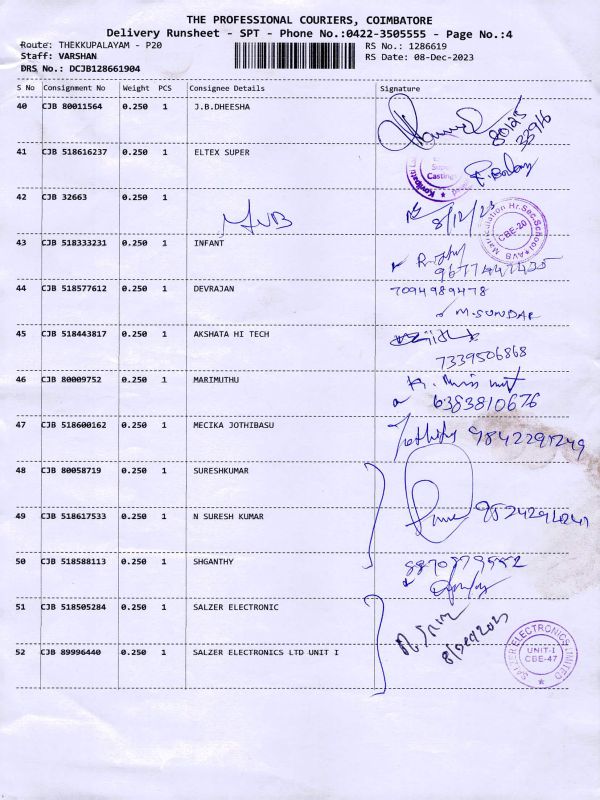 THE PROFESSIONAL COURIERS, COIMBATORE
Delivery Runsheet - SPT - Phone No.:0422-3505555 - Page No.:4
Route: THEKKUPALAYAM - P20 RS No.: 1286619
Staff: VARSHAN RS Date: 08-Dec-2023
DRS No.: DCJB128661904
S No Consignment No Weight PCS Consignee Details Signature
40 CJB 80011564 0.250 1 J.B.DHEESHA
80125
33916
41 CJB 518616237 0.250 1 ELTEX SUPER
Super
Casting
42 CJB 32663 0.250 1
AVB
8/12/23
Matriculation Hr.Sec.School * AVB
CBE-20
43 CJB 518333231 0.250 1 INFANT
44 CJB 518577612 0.250 1 DEVRAJAN 7094989478
M.SUNDAR
45 CJB 518443817 0.250 1 AKSHATA HI TECH
7339506868
46 CJB 80009752 0.250 1 MARIMUTHU
6383810676
47 CJB 518600162 0.250 1 MECIKA JOTHIBASU
9842295249
48 CJB 80058719 0.250 1 SURESHKUMAR
49 CJB 518617533 0.250 1 N SURESH KUMAR
50 CJB 518588113 0.250 1 SHGANTHY
51 CJB 518505284 0.250 1 SALZER ELECTRONIC
8/Dec/2023
52 CJB 89996440 0.250 1 SALZER ELECTRONICS LTD UNIT I
SALZER ELECTRONICS LIMITED
UNIT-I
CBE-47